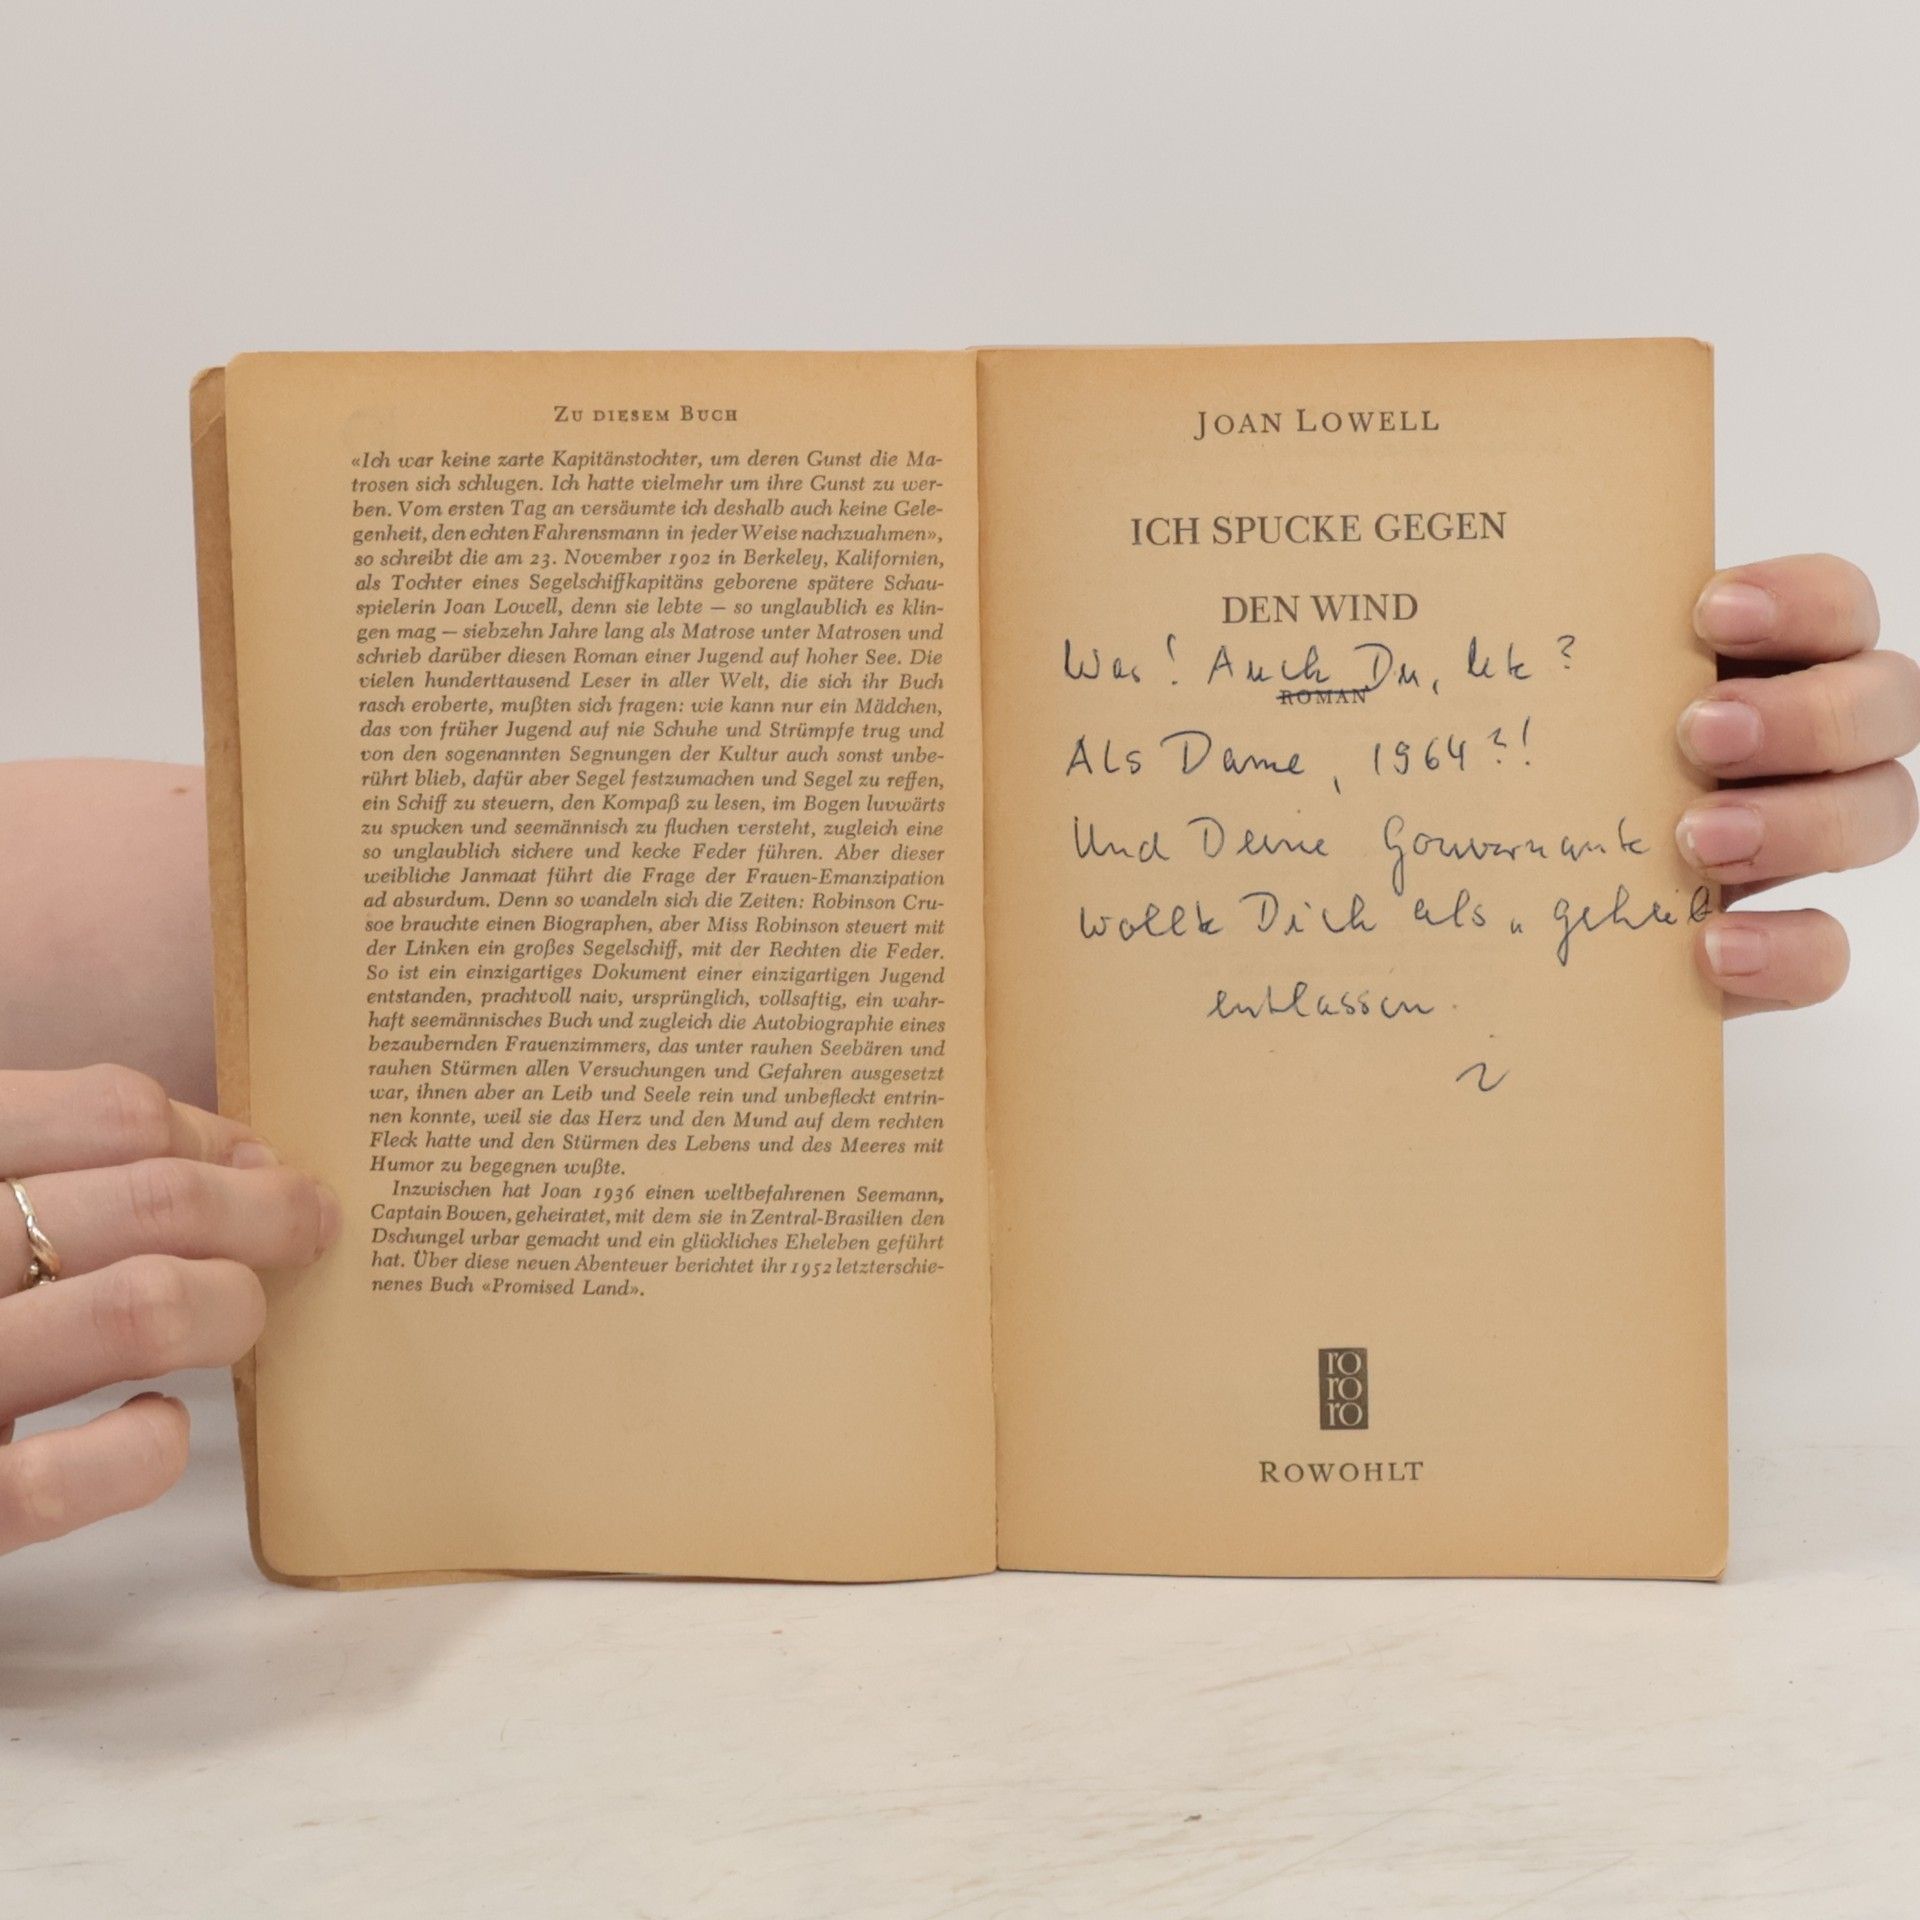 ZU DIESEM BUCH
«Ich war keine zarte Kapitänstochter, um deren Gunst die Ma-
trosen sich schlugen. Ich hatte vielmehr um ihre Gunst zu wer-
ben. Vom ersten Tag an versäumte ich deshalb auch keine Gele-
genheit, den echten Fahrensmann in jeder Weise nachzuahmen»,
so schreibt die am 23. November 1902 in Berkeley, Kalifornien,
als Tochter eines Segelschiffkapitäns geborene spätere Schau-
spielerin Joan Lowell, denn sie lebte – so unglaublich es klin-
gen mag – siebzehn Jahre lang als Matrose unter Matrosen und
schrieb darüber diesen Roman einer Jugend auf hoher See. Die
vielen hunderttausend Leser in aller Welt, die sich ihr Buch
rasch eroberte, mußten sich fragen: wie kann nur ein Mädchen,
das von früher Jugend auf nie Schuhe und Strümpfe trug und
von den sogenannten Segnungen der Kultur auch sonst unbe-
rührt blieb, dafür aber Segel festzumachen und Segel zu reffen,
ein Schiff zu steuern, den Kompaß zu lesen, im Bogen luvwärts
zu spucken und seemännisch zu fluchen versteht, zugleich eine
so unglaublich sichere und kecke Feder führen. Aber dieser
weibliche Janmaat führt die Frage der Frauen-Emanzipation
ad absurdum. Denn so wandeln sich die Zeiten: Robinson Cru-
soe brauchte einen Biographen, aber Miss Robinson steuert mit
der Linken ein großes Segelschiff, mit der Rechten die Feder.
So ist ein einzigartiges Dokument einer einzigartigen Jugend
entstanden, prachtvoll naiv, ursprünglich, vollsaftig, ein wahr-
haft seemännisches Buch und zugleich die Autobiographie eines
bezaubernden Frauenzimmers, das unter rauhen Seebären und
rauhen Stürmen allen Versuchungen und Gefahren ausgesetzt
war, ihnen aber an Leib und Seele rein und unbefleckt entrin-
nen konnte, weil sie das Herz und den Mund auf dem rechten
Fleck hatte und den Stürmen des Lebens und des Meeres mit
Humor zu begegnen wußte.
Inzwischen hat Joan 1936 einen weltbefahrenen Seemann,
Captain Bowen, geheiratet, mit dem sie in Zentral-Brasilien den
Dschungel urbar gemacht und ein glückliches Eheleben geführt
hat. Über diese neuen Abenteuer berichtet ihr 1952 letzterschie-
nenes Buch «Promised Land».
JOAN LOWELL
ICH SPUCKE GEGEN
DEN WIND
Was! Auch Du, ?
ROMAN
Als Dame, 1964?!
Und Deine Gouvernante
wollte Dich als „
entlassen.
ro
ro
ro
ROWOHLT